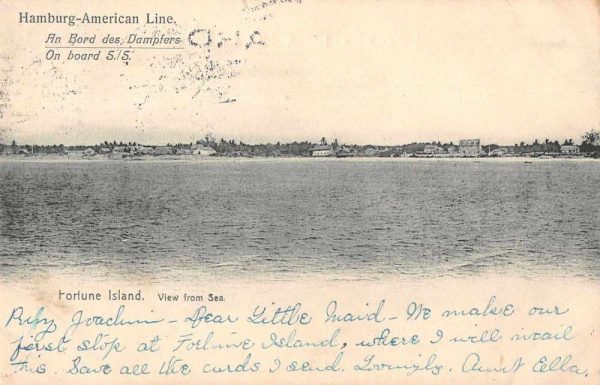 Hamburg-American Line.
An Bord des Dampfers
On board S.S.
Fortune Island. View from Sea.
Joachim - Dear Little Maid - We make our
first stop at Fortune Island, where I will mail
this. Save all the cards I send. Lovingly, Aunt Ella.